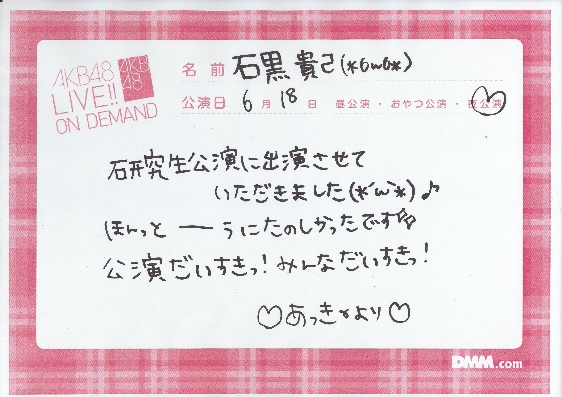 AKB48
LIVE!!
ON DEMAND
AKB
48
名前 石黒貴己(*óωò*)
公演日 6月18日 昼公演・おやつ公演・夜公演
研究生公演に出演させて
いただきました(*´ω`*)♪
ほんっとーうにたのしかったです
公演だいすきっ!みんなだいすきっ!
♡あっきより♡
DMM.com